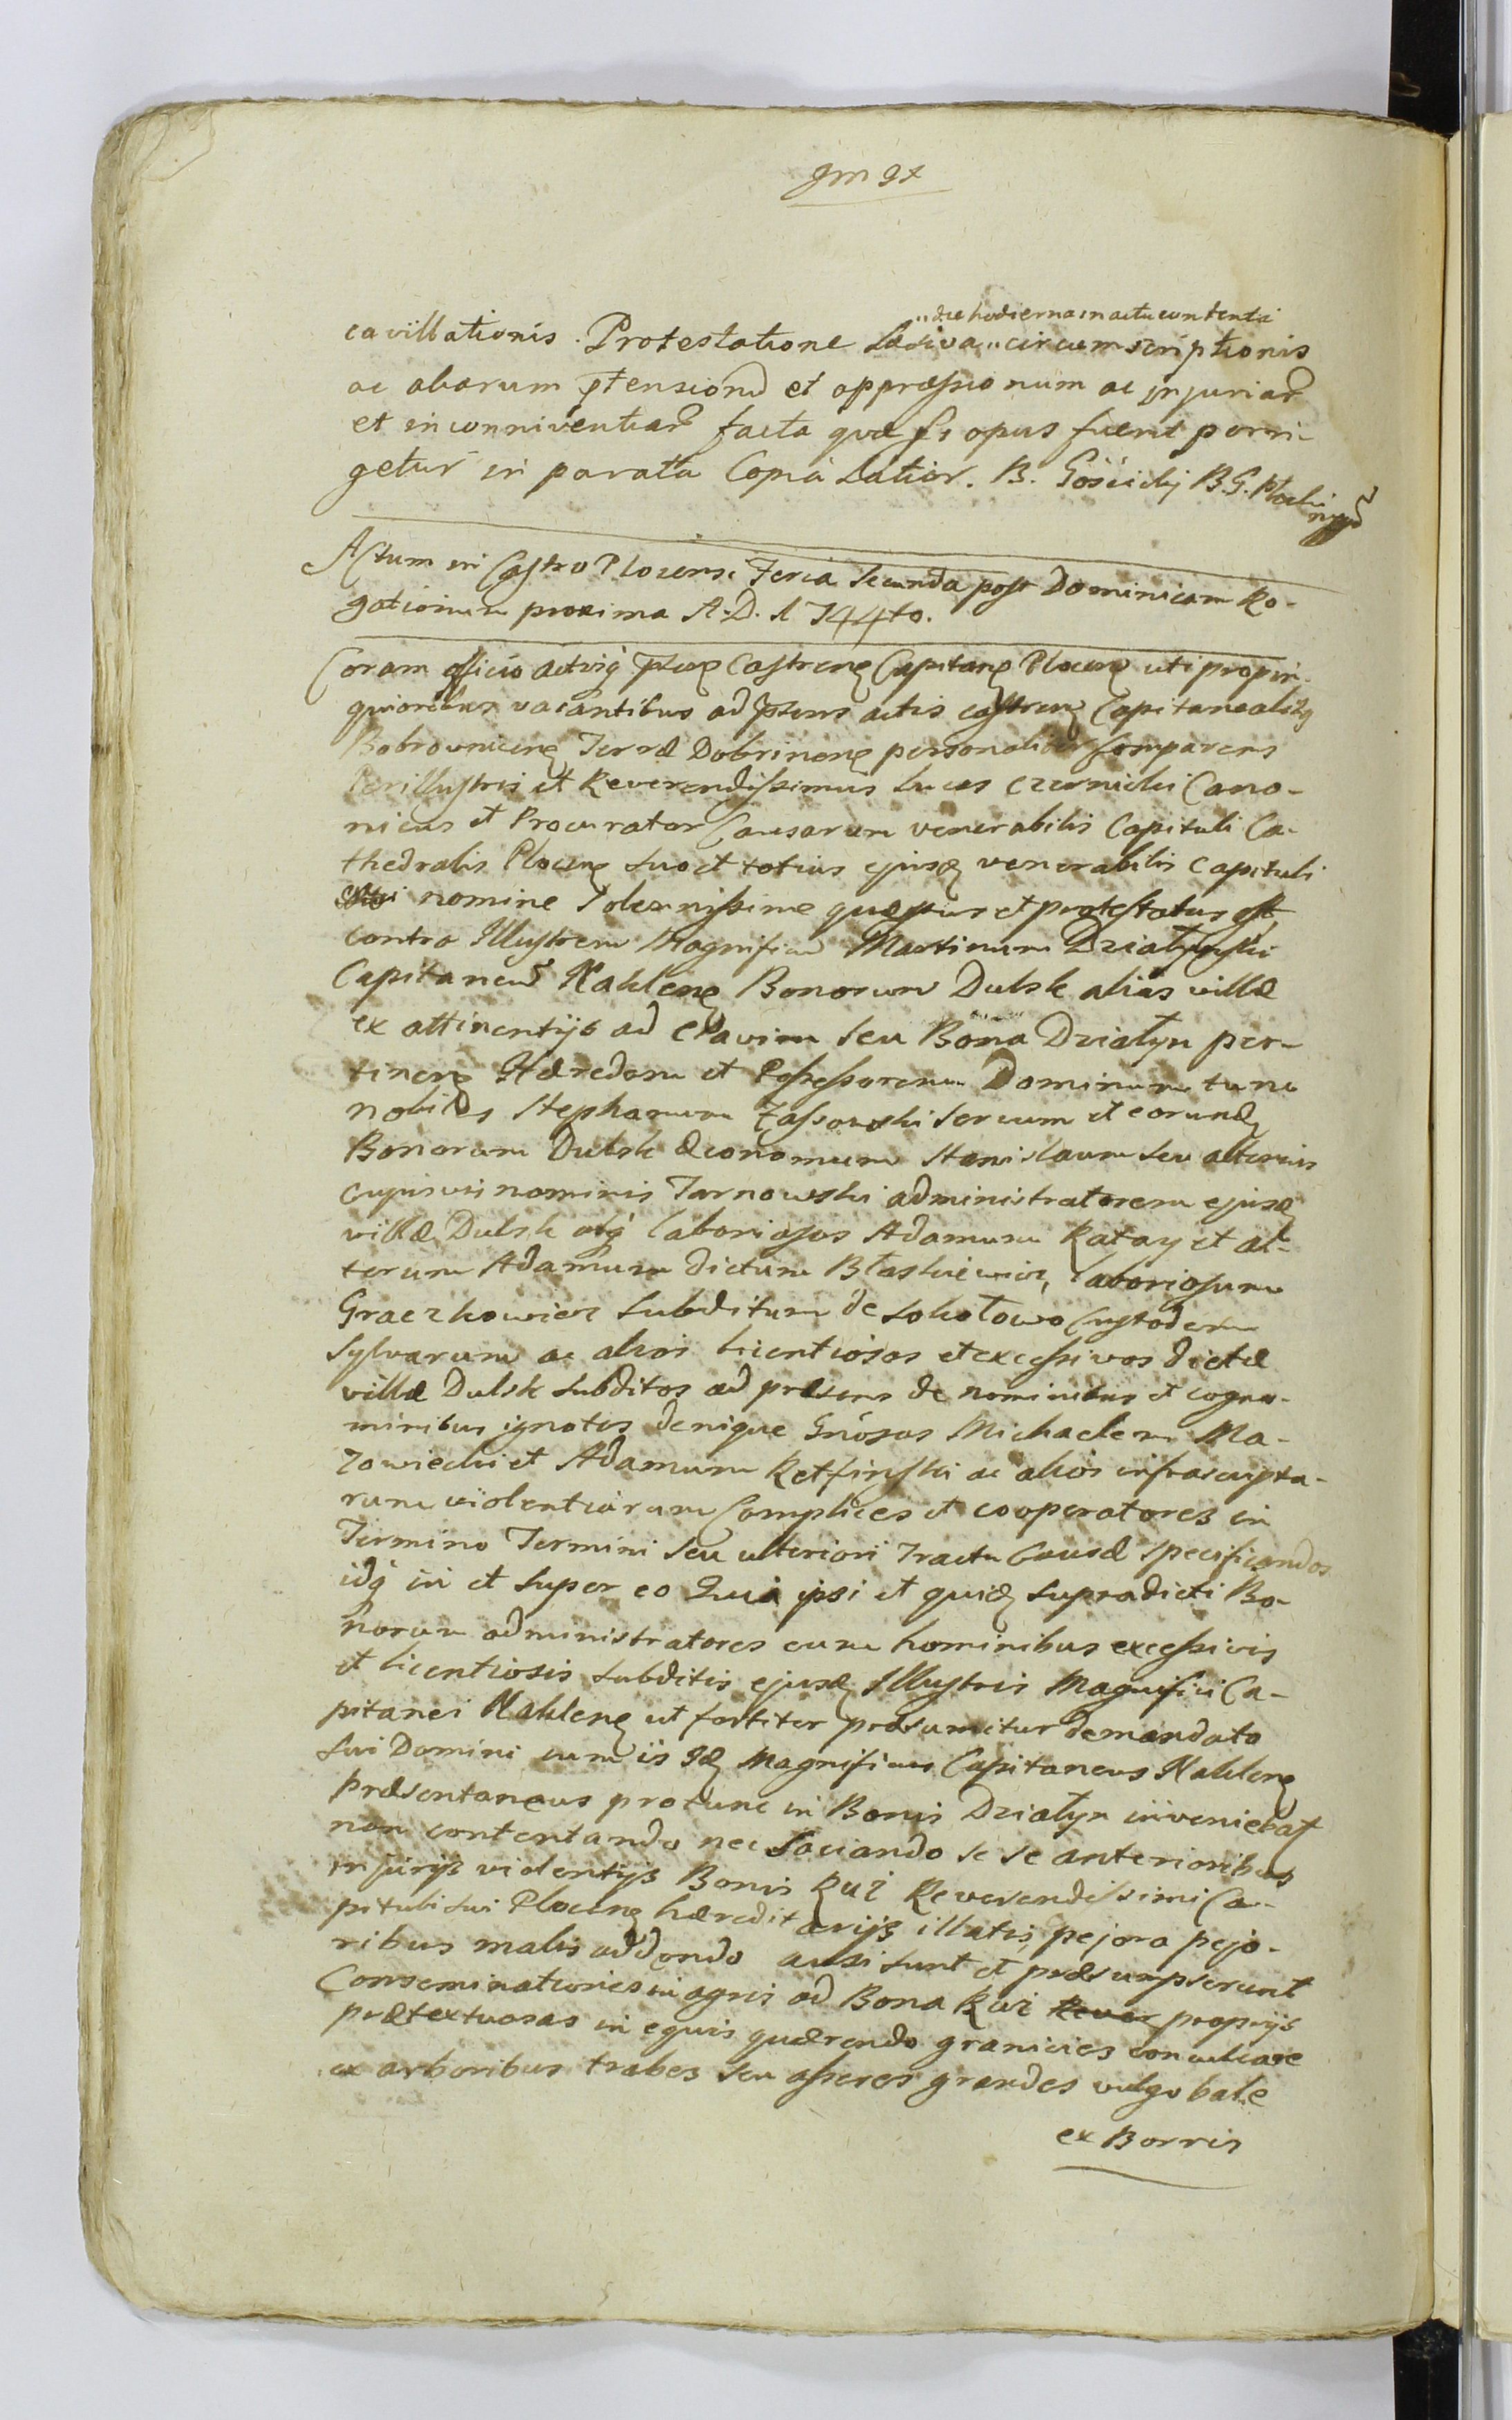 cavillationis. Protestatione Læsiva „ circumscriptionis
„die hodierna in actu contenta
ac aliarum ptensionu et oppræssionum ac injuriar
et inconniventiar facta quæ si opus fuerit porri-
getur in parata Copia Latior. B. Gościcki B.G. Płocki
Actum in Castro Plocensi Feria Secunda post Dominicam Ro-
gationum proxima A.D. 1744to.
Coram officio actisq Castren Capitan Plocen uti propin-
quioribus vacantibus ad psens actis castren Capitanealib
Bobrovnicen Terræ Dobrinen personaliter Comparens
Perillustris et Reverendissimus Lucas Czernicki Cano-
nicus et Procurator Causarum venerabilis Capituli Ca-
thedralis Plocen suo et totius ejusd venerabilis Capituli
sui nomine Solemnissime quæstus et protestatus est
contra Illustrem Magnificu Martinum Działyński
Capitaneu Naklen Bonorum Dulsk alias villæ
ex attinentijs ad Clavim seu Bona Działyn per-
tinen Hæredem et Possessorem Dominum tunc
nobiles Stephanum Zassowski servum et eorund
Bonorum Dulsk Œconomum Stanislaum seu alterius
cujusvis nominis Tarnowski administratorem ejusd
villæ Dulsk atq laboriosos Adamum Katay et al-
terum Adamum dictum Błaskiewicz, laboriosum
Graczkowicz Subditum de Sokołowo Custodem
Sylvarum ac alios licentiosos et excessivos dictæ
villæ Dulsk Subditos ad præsens de nominibus et cogno-
minibus ignotos denique Gnosos Michaelem Ma-
zowiecki et Adamum Retfinski ac alios infrascripta-
rum violentiarum Complices et cooperatores in
Termino Termini seu ulteriori Tractu Causæ specificandos
idq in et super eo Quia ipsi et quid supradicti Bo-
norum administratores cum hominibus excessivis
et licentiosis subditis ejusd Illustris Magnifici Ca-
pitanei Naklen ut fortiter præsumitur demandato
sui Domini cum iis Id Magnificus Capitaneus Naklen
præsentaneus protunc in Bonis Działyn inveniebat
non contentando nec Saciando se se anterioribus
injurijs violentijs Bonis Rui Reverendissimi Ca-
pituli sui Plocen hæreditarijs illatis, pejora pejo-
ribus malis addendo ausi sunt et præsumpserunt
Conseminationes in agris ad Bona Rui propijs
prætextuosas in equis quærendo granicies conculcare
ex arboribus trabes seu asseres grandes vulgo bale
ex Borris